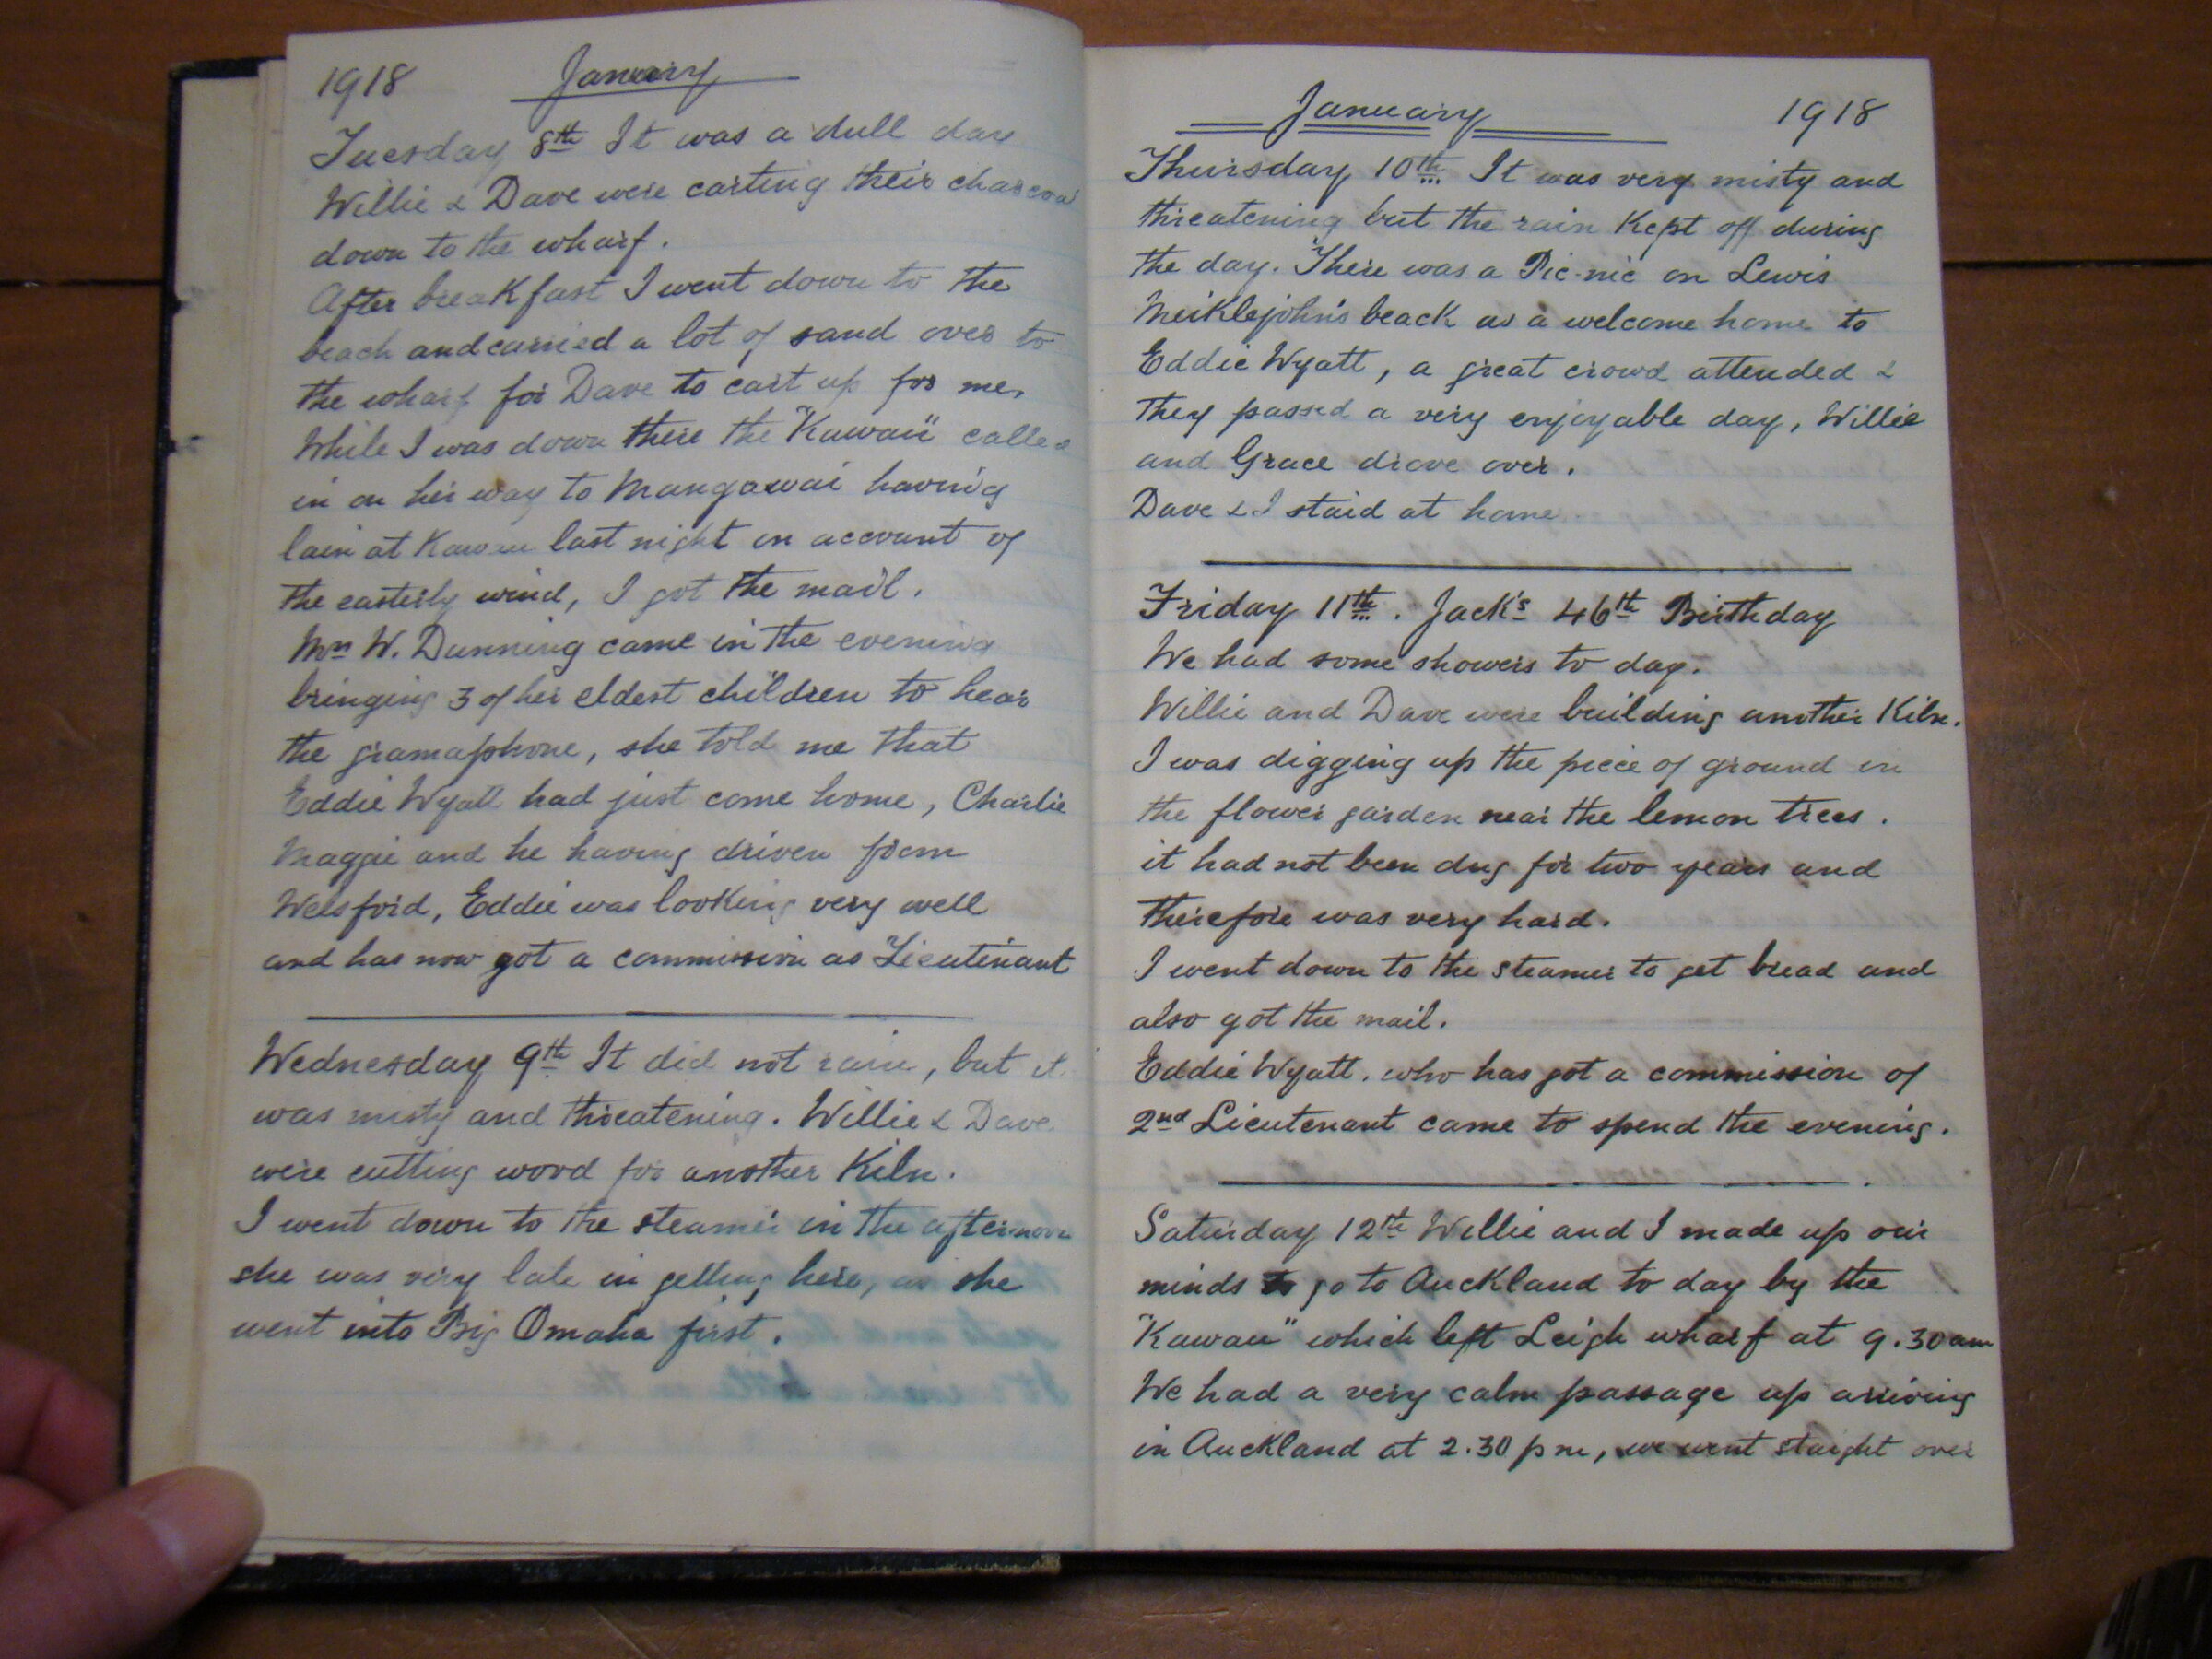 1918 January
Tuesday 8th It was a dull day
Willie & Dave were carting their charcoal
down to the wharf.
After breakfast I went down to the
beach and carried a lot of sand over to
the wharf for Dave to cart up for me.
While I was down there the "Kawau" called
in on her way to Mangawai having
lain at Kawau last night on account of
the easterly wind, I got the mail.
Mrs W. Dunning came in the evening
bringing 3 of her eldest children to hear
the gramaphone, she told me that
Eddie Wyatt had just come home, Charlie
Maggie and he having driven from
Welsford, Eddie was looking very well
and has now got a commission as Lieutenant
Wednesday 9th It did not rain, but it
was misty and threatening. Willie & Dave
were cutting wood for another Kiln.
I went down to the steamer in the afternoon
she was very late in getting here, as she
went into Big Omaha first.
January 1918
Thursday 10th It was very misty and
threatening but the rain Kept off during
the day. There was a Pic-nic on Lewis
Meiklejohn's beack as a welcome home to
Eddie Wyatt, a great crowd attended &
they passed a very enjoyable day, Willie
and Grace drove over.
Dave & I staid at home
Friday 11th. Jack's 46th Birthday
We had some showers to day.
Willie and Dave were building another Kiln.
I was digging up the piece of ground in
the flower garden near the lemon trees.
it had not been dug for two years and
therefore was very hard.
I went down to the steamer to get bread and
also got the mail.
Eddie Wyatt, who has got a commission of
2nd Lieutenant came to spend the evening.
Saturday 12th Willie and I made up our
minds to go to Auckland to day by the
"Kawau" which left Leigh wharf at 9.30 am
We had a very calm passage up arriving
in Auckland at 2.30 pm, we went staight over